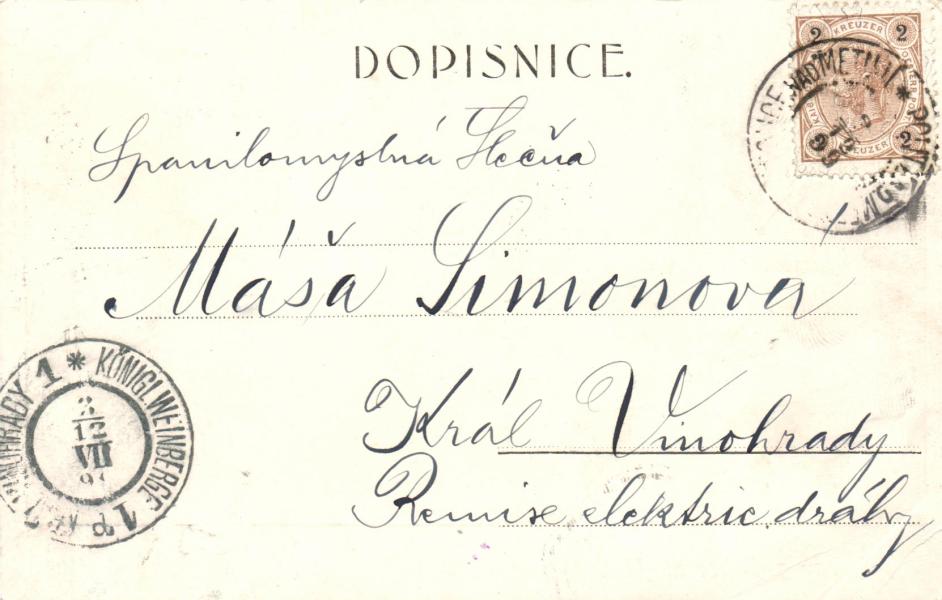 DOPISNICE.
2 KREUZER 2
2 KREUZER 2
NAD METUJÍ *
Spanilomyslná Slečna
Máša Simonova
Král Vinohrady
Remise elektric. dráhy
VINOHRADY 1 * KÖNIGL. WEINBERGE 1
3
12
VII